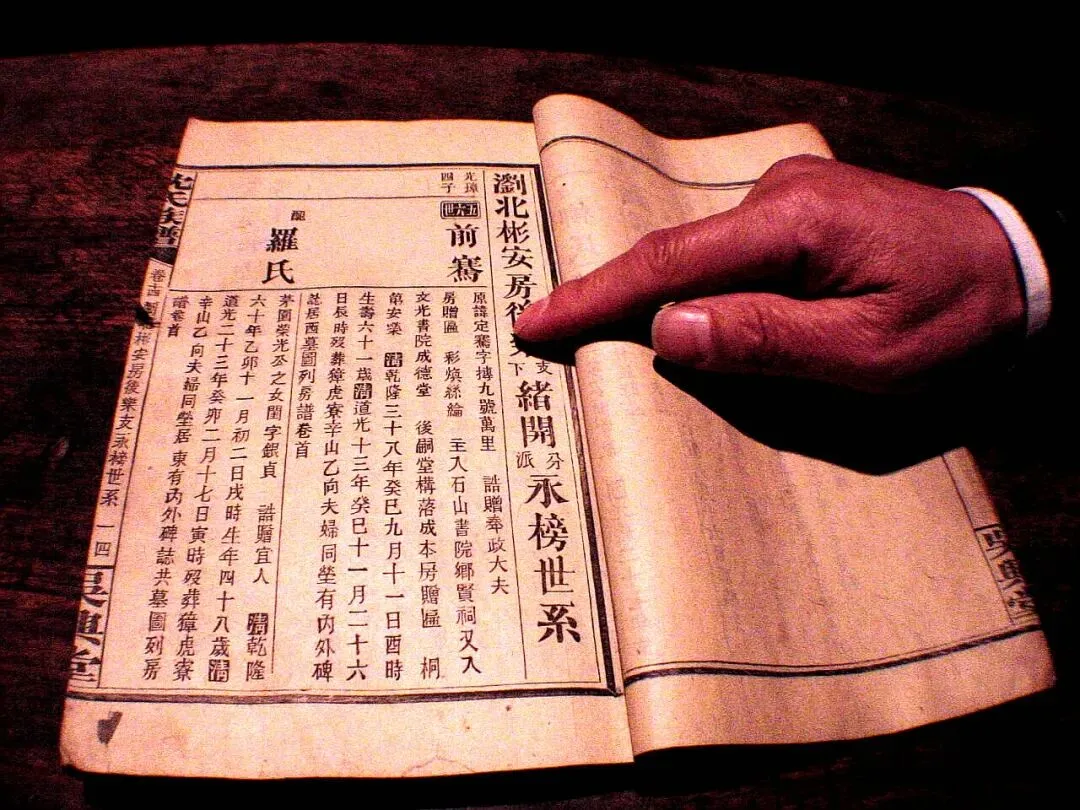 瀏北彬安房後支下緒開分派永榜世系
光璋四子
五六世
前騫
原諱定騫字摶九號萬里 誥贈奉政大夫
房贈匾 彩煥絲綸 主入石山書院鄉賢祠又入
文光書院成德堂 後嗣堂構落成本房贈匾 桐
第安榮 清乾隆三十八年癸巳九月十一日酉時
生壽六十一歲清道光十三年癸巳十一月二十六
日辰時歿葬獐虎寮辛山乙向夫婦同塋有內外碑
誌居西墓圖列房譜卷首
配
羅氏
茅園榮光公之女閨字銀貞 誥贈宜人 清乾隆
六十年乙卯十一月初二日戌時生年四十八歲清
道光二十三年癸卯二月十七日寅時歿葬獐虎寮
辛山乙向夫婦同塋居東有內外碑誌共墓圖列房
譜卷首
沈氏族譜
卷十四
北彬安房後樂支永榜世系
一四
吳興堂
吳興堂